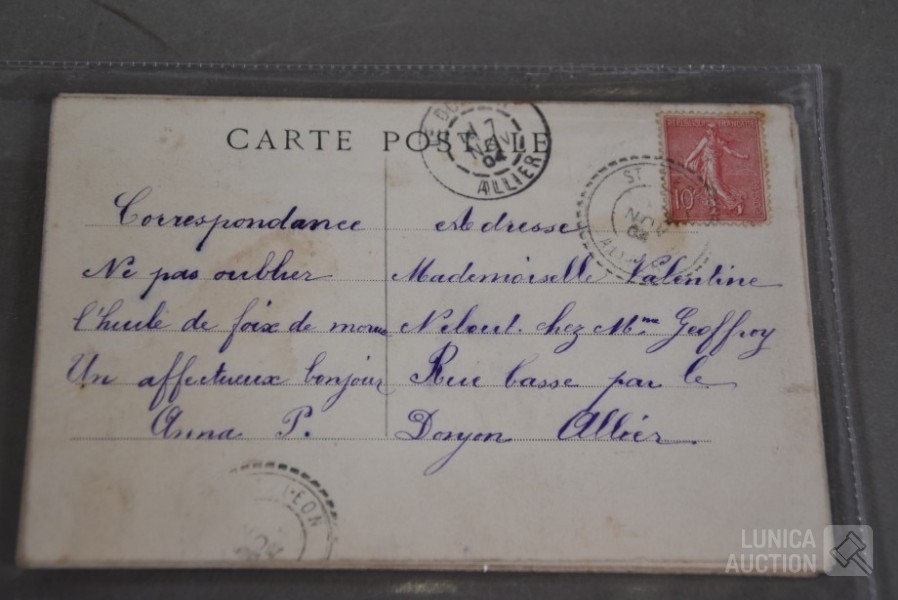 CARTE POSTALE
NOV
04
ALLIER
REPUBLIQUE FRANCAISE
10c
ST
NOV
04
Correspondance
Ne pas oublier
l'huile de foix de morue
Un affectueux bonjour
Anna P.
Adresse
Mademoiselle Valentine
chez Mme Geoffroy
Rue basse par le
Donjon Allier.
LEON
LUNICA
AUCTION